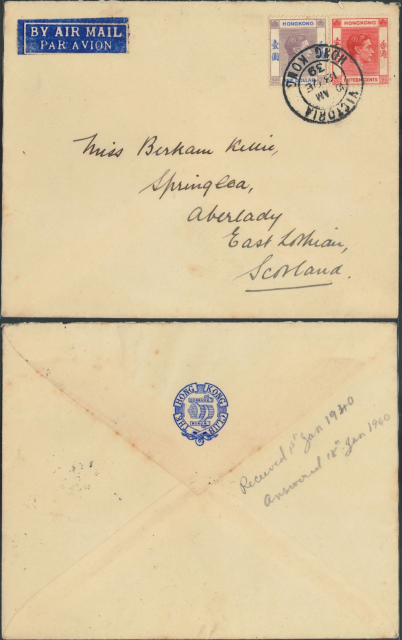 BY AIR MAIL
PAR AVION
HONGKONG
HONGKONG
壹圓
FIFTEEN CENTS
VICTORIA
HONG KONG
AM
39
Miss Berham Kellie,
Springlea,
Aberlady
East Lothian,
Scotland.
THE HONG KONG CLUB
Received 1st Jan 1940
Answered 18th Jan 1960